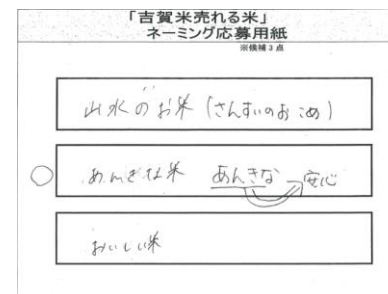 「吉賀米売れる米」
ネーミング応募用紙
※候補3点
山水のお米(さんすいのおこめ)
あんきな米 あんきな 安心
おいしい米